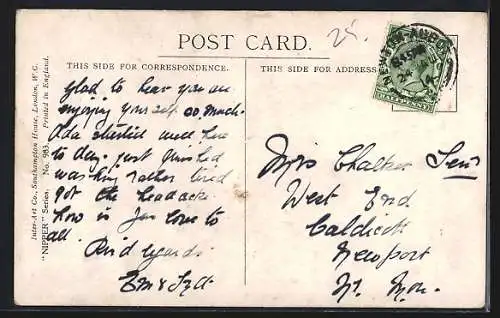 POST CARD.
25.
THIS SIDE FOR CORRESPONDENCE.
THIS SIDE FOR ADDRESS
Inter-Art Co., Southampton House, London, W.C.
"NIPPER" Series. No. 983. Printed in England.
Glad to hear you are
enjoying yourself so much.
Ada
to day. just finished
washing rather tired
got the headache
how is love to
all.
Kind regards
Em &
Mrs Chalker Senr
West End
Caldicott
Newport
Nr. Mon.
HALFPENNY
8.15 PM